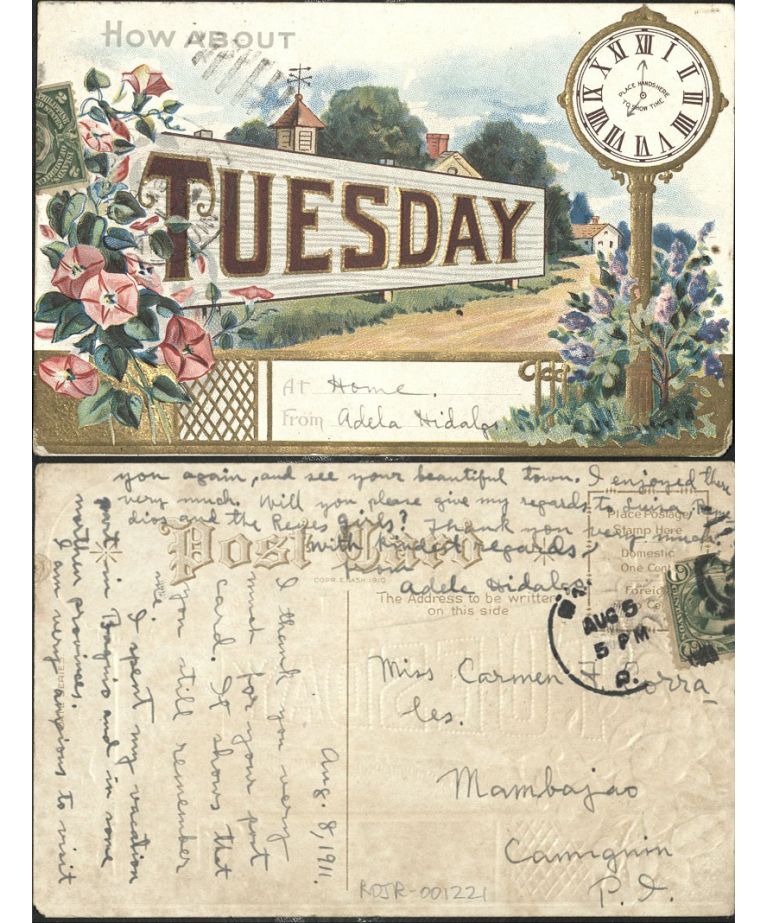 How ABOUT
TUESDAY
XII I II III V VI VII VIII IX X XI
PLACE HANDS HERE
TO SHOW TIME
At Home.
From Adela Hidalgo.
Post Card
COPR. E. NASH 1910
Place Postage
Stamp Here
Domestic
One Cent
Foreign
The Address to be written
on this side
AUG 5
5 PM
P.
Miss Carmen F. Corra
les.
Mambajao
Camiguin
P. I.
Aug. 8, 1911.
I thank you very
much for your post
card. It shows that
you still remember
me.
I spent my vacation
in Baguio and in some
northern provinces.
I am very anxious to visit
you again, and see your beautiful town. I enjoyed there
very much. Will you please give my regards to Reme-
dios and the Reyes girls? Thank you very much.
With kindest regards,
from
Adela Hidalgo
RDJR-001221